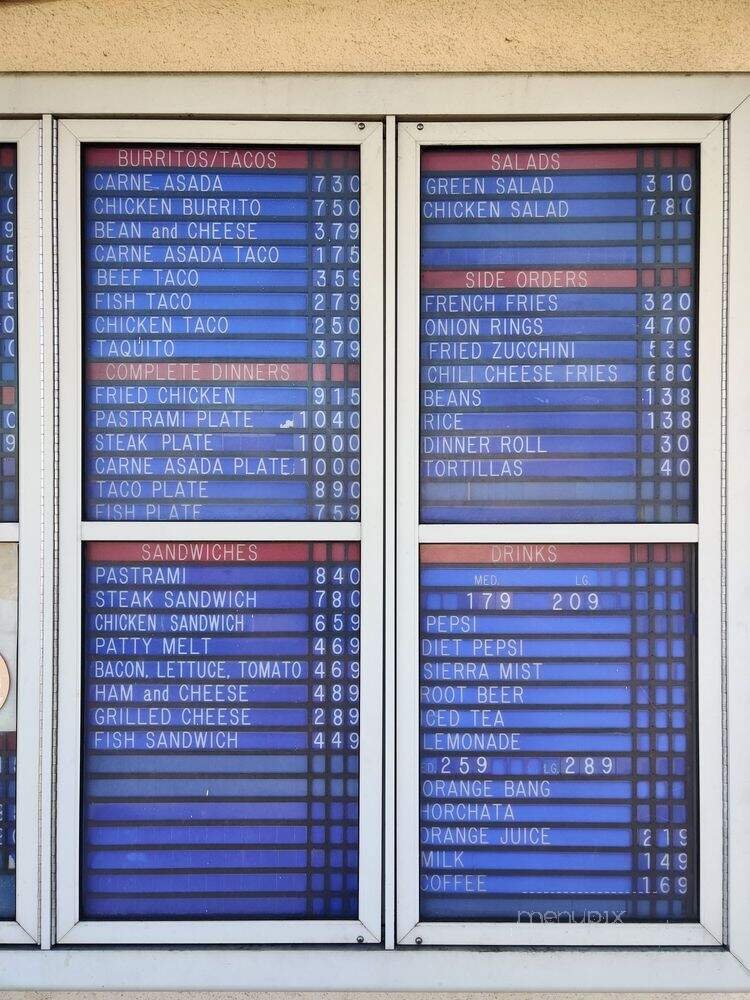 BURRITOS/TACOS
CARNE ASADA 730
CHICKEN BURRITO 750
BEAN and CHEESE 379
CARNE ASADA TACO 175
BEEF TACO 359
FISH TACO 279
CHICKEN TACO 250
TAQUITO 379
COMPLETE DINNERS
FRIED CHICKEN 915
PASTRAMI PLATE 1040
STEAK PLATE 1000
CARNE ASADA PLATE 1000
TACO PLATE 890
FISH PLATE 759
SANDWICHES
PASTRAMI 840
STEAK SANDWICH 780
CHICKEN SANDWICH 659
PATTY MELT 469
BACON, LETTUCE, TOMATO 469
HAM and CHEESE 489
GRILLED CHEESE 289
FISH SANDWICH 449
SALADS
GREEN SALAD 310
CHICKEN SALAD 780
SIDE ORDERS
FRENCH FRIES 320
ONION RINGS 470
FRIED ZUCCHINI 539
CHILI CHEESE FRIES 680
BEANS 138
RICE 138
DINNER ROLL 30
TORTILLAS 40
DRINKS
MED. LG.
179 209
PEPSI
DIET PEPSI
SIERRA MIST
ROOT BEER
ICED TEA
LEMONADE
ED. 259 LG. 289
ORANGE BANG
HORCHATA
ORANGE JUICE 219
MILK 149
COFFEE 169
menupix